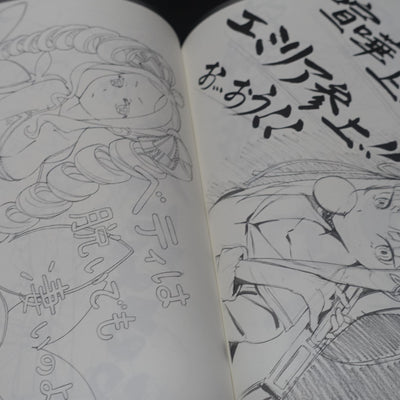 喧嘩上
エミリア参上!!
おぅおぅ!!
ベティは
脱いでも
凄いのよ